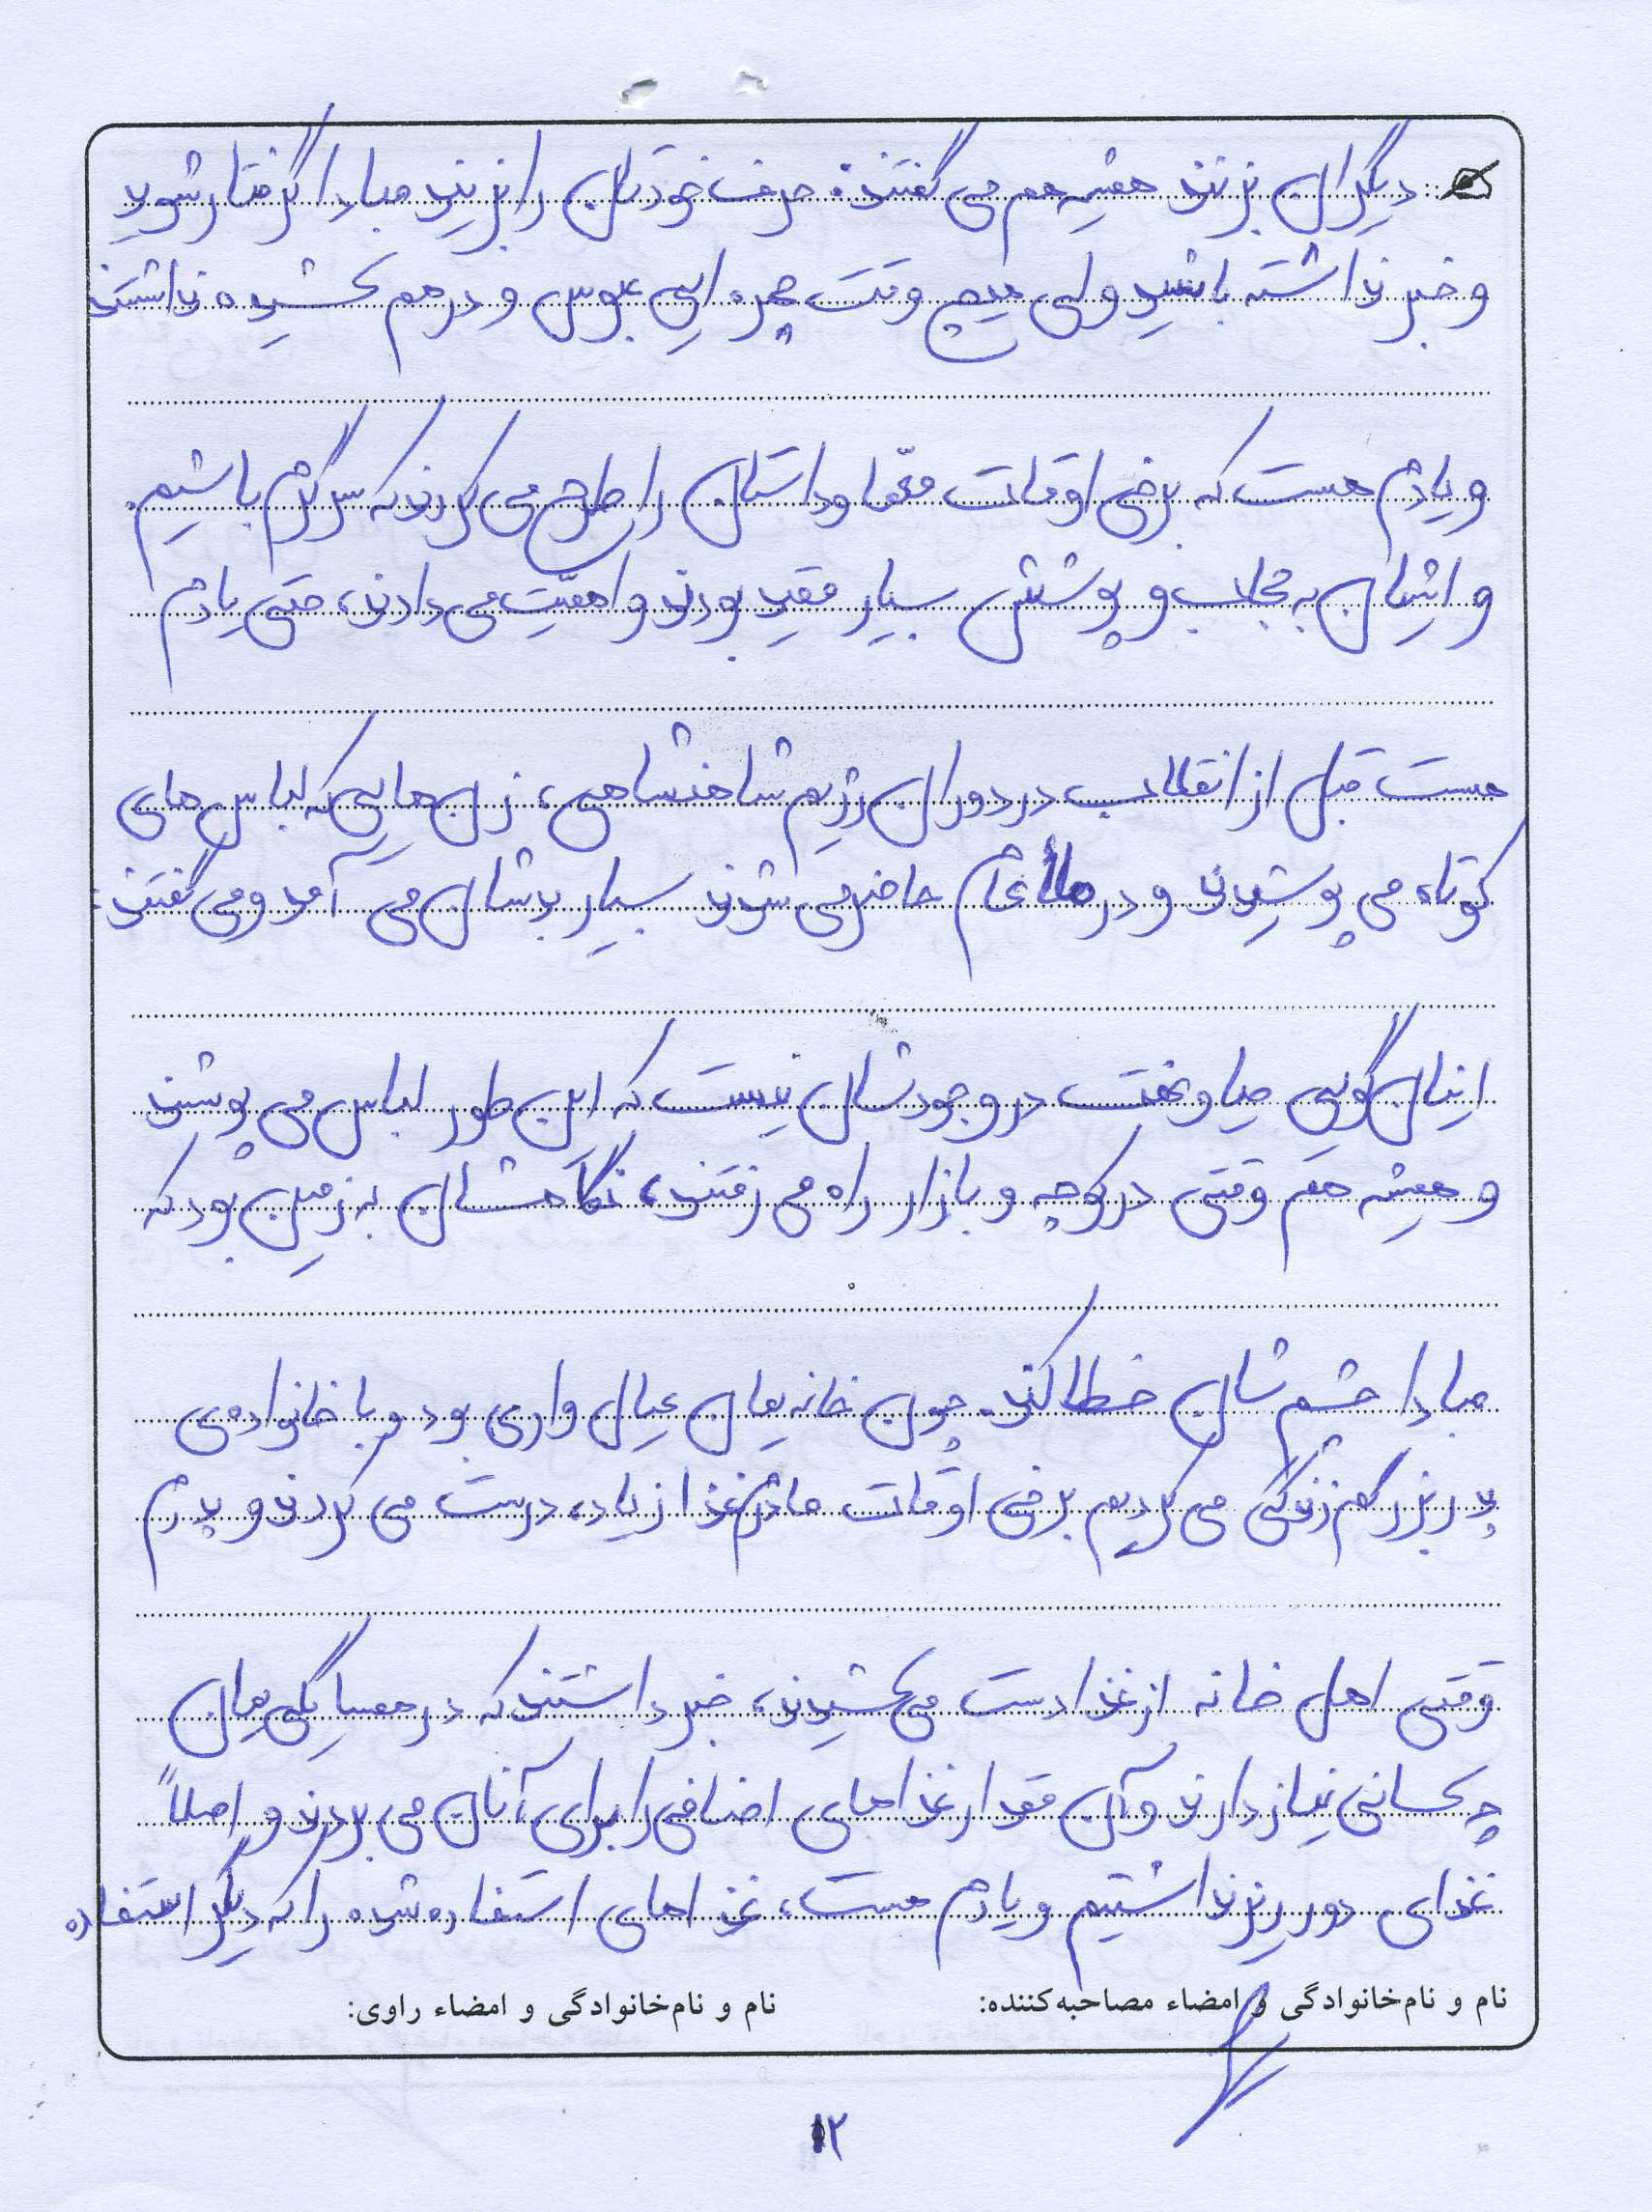 دیگران بزنند همیشه هم می گفتند: حرف خودتان را بزنید مبادا گرفتار شوید
و خبر نداشته باشید ولی هیچ وقت چهره ایی عبوس و درهم کشیده نداشتند
و یادم هست که برخی اوقات معّما و داستان را طرح می کردند که سرگرم باشیم.
و ایشان به حجاب و پوشش بسیار مقید بودند و اهمّیت می دادند، حتی یادم
هست قبل از انقلاب در دوران رژیم شاهنشاهی، زن هایی که لباس های
کوتاه می پوشیدند و در ملأ عام حاضر می شدند بسیار بدشان می آمد و می گفتند:
اینان گویی حیا و عفت در وجودشان نیست که این طور لباس می پوشند
و همیشه هم وقتی در کوچه و بازار راه می رفتند، نگاهشان به زمین بود که
مبادا چشم شان خطا کند. چون خانه یمان عیال واری بود و با خانواده ی
پدربزرگم زندگی می کردیم برخی اوقات مادرم غذا زیاد، درست می کردند و پدرم
وقتی اهل خانه از غذا دست می کشیدند، خبر داشتند که در همسایگی یمان
چه کسانی نیاز دارند و آن مقدار غذاهای اضافی را برای آنان می بردند و اصلاً
غذای دور ریز نداشتیم و یادم هست، غذاهای استفاده شده را که دیگر استفاده
نام و نام‌خانوادگی و امضاء مصاحبه‌کننده: نام و نام‌خانوادگی و امضاء راوی:
۱۲